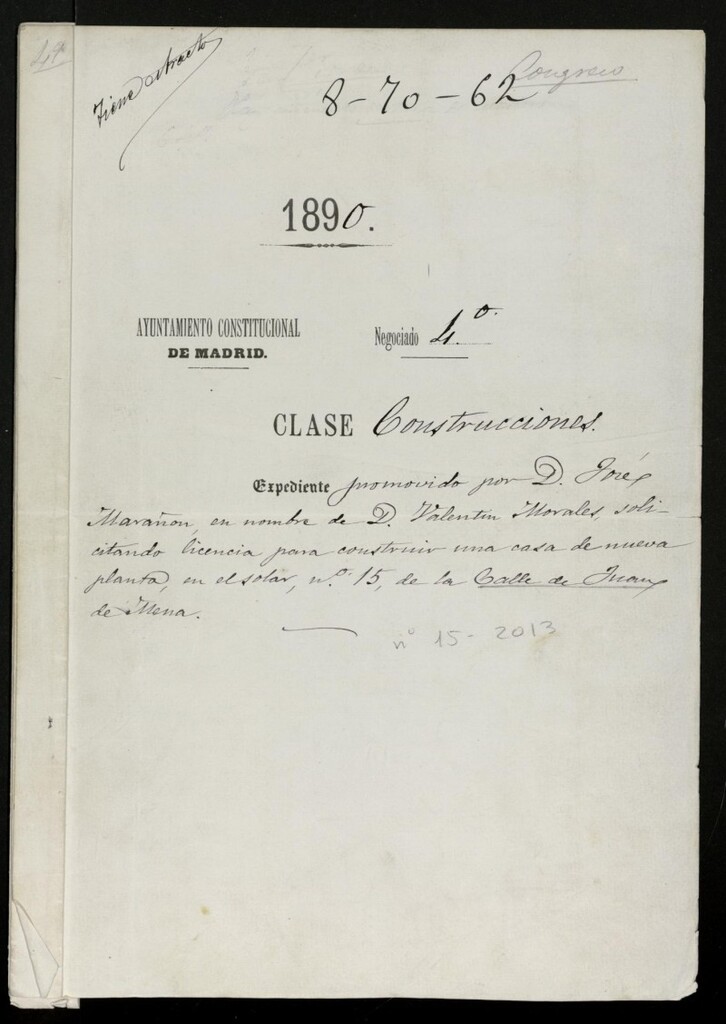 Tiene extracto
Congreso
8-70-62
1890.
AYUNTAMIENTO CONSTITUCIONAL
DE MADRID.
Negociado 4.º
CLASE Construcciones.
Expediente promovido por D. José
Marañon, en nombre de D. Valentin Morales, soli-
citando licencia para construir una casa de nueva
planta, en el solar, n.º 15, de la Calle de Juan
de Mena.
nº 15-2013